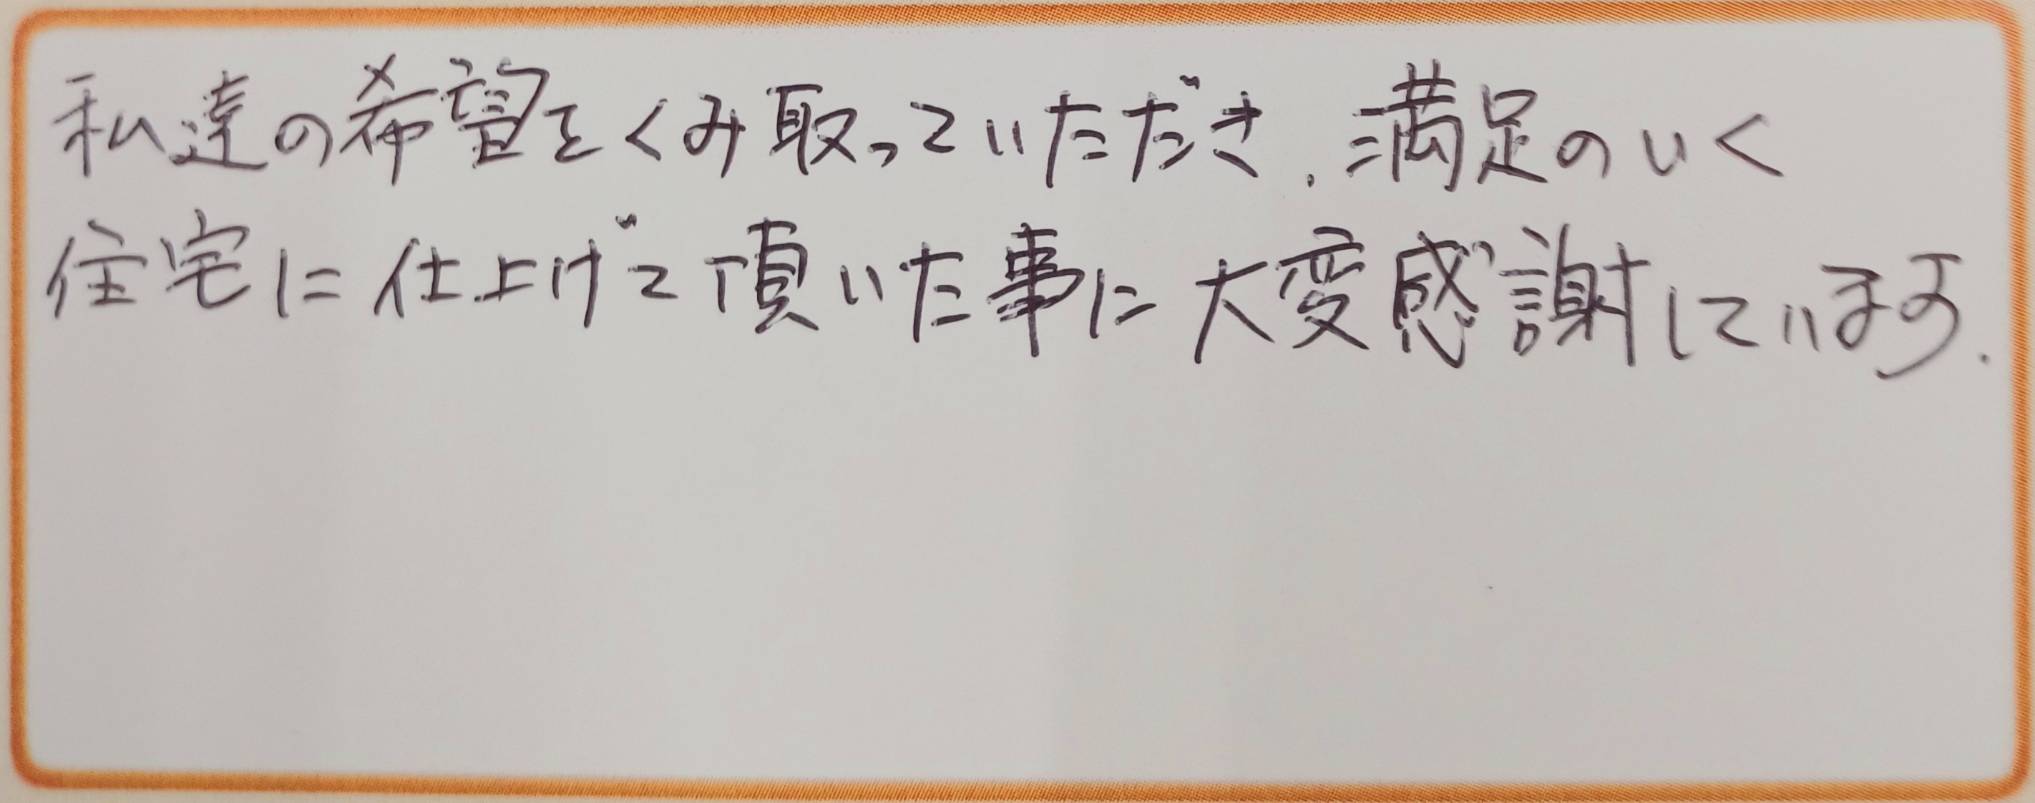 私達の希望をくみ取っていただき、満足のいく
住宅に仕上げて頂いた事に大変感謝しています。